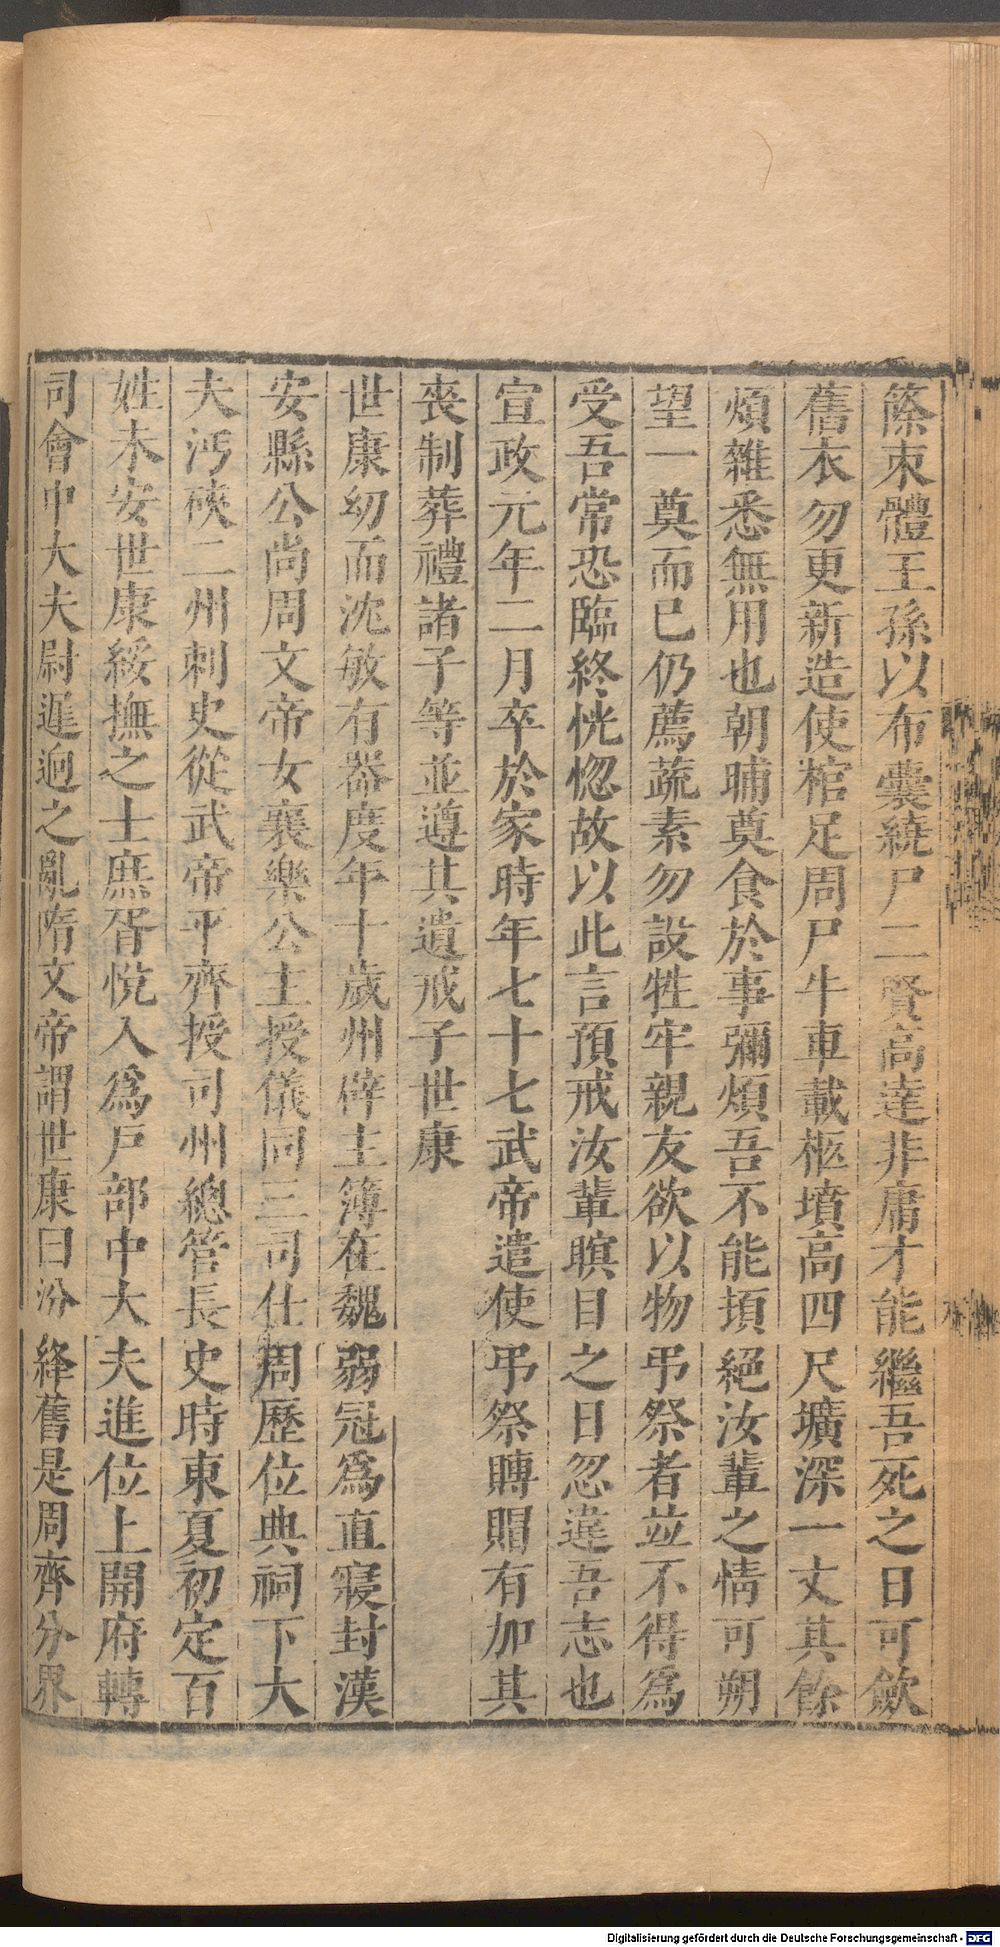 篨束體王孫以布囊繞尸二賢高達非庸才能繼吾死之日可斂
舊衣勿更新造使棺足周尸牛車載柩墳高四尺壙深一丈其餘
煩雜悉無用也朝晡奠食於事彌煩吾不能頓絕汝輩之情可朔
望一奠而已仍薦蔬素勿設牲牢親友欲以物弔祭者並不得爲
受吾常恐臨終恍惚故以此言預戒汝輩瞑目之日忽違吾志也
宣政元年二月卒於家時年七十七武帝遣使弔祭賻賵有加其
喪制葬禮諸子等並遵其遺戒子世康
世康幼而沈敏有器度年十歲州辟主簿在魏弱冠爲直寢封漢
安縣公尚周文帝女襄樂公主授儀同三司仕周歷位典祠下大
夫沔硤二州刺史從武帝平齊授司州總管長史時東夏初定百
姓未安世康綏撫之士庶胥悅入爲戸部中大夫進位上開府轉
司會中大夫尉遲迥之亂隋文帝謂世康曰汾絳舊是周齊分界
Digitalisierung gefördert durch die Deutsche Forschungsgemeinschaft - DFG